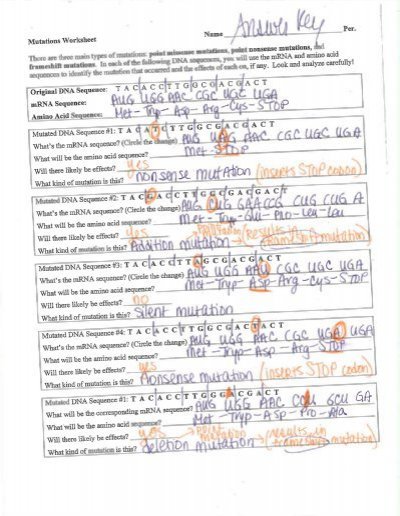 Mutations Worksheet Name Answer Key Per.
There are three main types of mutations: point missense mutations, point nonsense mutations, and
frameshift mutations. In each of the following DNA sequences, you will use the mRNA and amino acid
sequences to identify the mutation that occurred and the effects of each on, if any. Look and analyze carefully!
Original DNA Sequence: T A C A C C T T G G C G A C G A C T
mRNA Sequence: AUG UGG AAC CGC UGC UGA
Amino Acid Sequence: Met - Tryp - Asp - Arg - Cys - STOP
Mutated DNA Sequence #1: T A C A T C T T G G C G A C G A C T
What's the mRNA sequence? (Circle the change) AUG UAG AAC CGC UGC UGA
What will be the amino acid sequence? Met - STOP
Will there likely be effects? yes
What kind of mutation is this? nonsense mutation (inserts STOP codon)
Mutated DNA Sequence #2: T A C G A C C T T G G C G A C G A C T
What's the mRNA sequence? (Circle the change) AUG CUG GAA CCG CUG CUG A
What will be the amino acid sequence? Met - Tryp - Glu - Pro - Leu - Leu
Will there likely be effects? yes
What kind of mutation is this? Addition mutation (results
Mutated DNA Sequence #3: T A C A C C T T A G C G A C G A C T
What's the mRNA sequence? (Circle the change) AUG UGG AAU CGC UGC UGA
What will be the amino acid sequence? Met - Tryp - Asp - Arg - Cys - STOP
Will there likely be effects? no
What kind of mutation is this? Silent mutation
Mutated DNA Sequence #4: T A C A C C T T G G C G A C T A C T
What's the mRNA sequence? (Circle the change) AUG UGG AAC CGC UGA UGA
What will be the amino acid sequence? Met - Tryp - Asp - Arg - STOP
Will there likely be effects? yes
What kind of mutation is this? Nonsense mutation (inserts STOP codon)
Mutated DNA Sequence #1: T A C A C C T T G G G A C G A C T
What will be the corresponding mRNA sequence? AUG UGG AAC CCU GCU GA
What will be the amino acid sequence? Met - Tryp - Asp - Pro - Ala
Will there likely be effects? yes point mutation (results in
What kind of mutation is this? deletion mutation frameshift mutation)